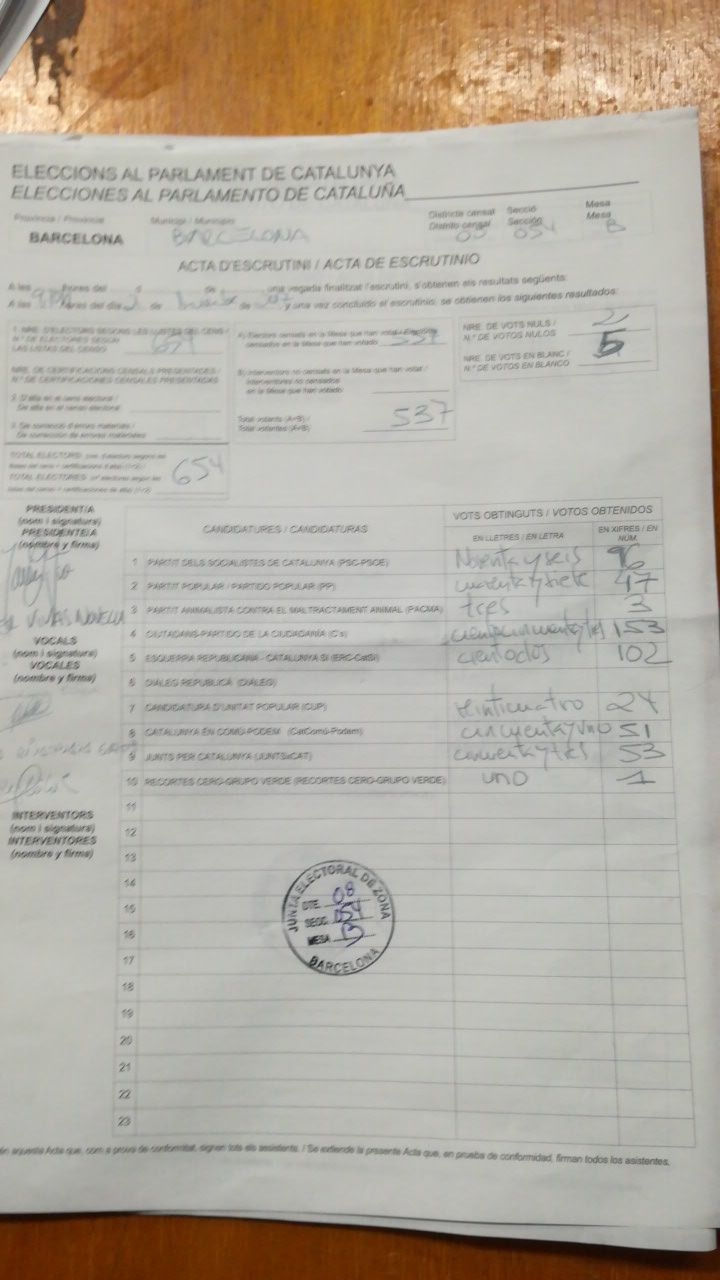 ELECCIONS AL PARLAMENT DE CATALUNYA
ELECCIONES AL PARLAMENTO DE CATALUÑA
Província / Provincia
Municipi / Municipio
Districte censal
Distrito censal
Secció
Sección
Mesa
Mesa
BARCELONA
BARCELONA
054
B
ACTA D'ESCRUTINI / ACTA DE ESCRUTINIO
A les hores del d de de , una vegada finalitzat l'escrutini, s'obtenen els resultats següents:
A las horas del día de de y una vez concluido el escrutinio, se obtienen los siguientes resultados:
1. NRE. D'ELECTORS SEGONS LES LLISTES DEL CENS /
N.º DE ELECTORES SEGÚN
LAS LISTAS DEL CENSO
654
NRE. DE CERTIFICACIONS CENSALS PRESENTADES /
N.º DE CERTIFICACIONES CENSALES PRESENTADAS
A) Electors censats en la Mesa que han votat / Electores
censados en la Mesa que han votado
537
B) Interventors no censats en la Mesa que han votat /
Interventores no censados
en la Mesa que han votado
Total votants (A+B) /
Total votantes (A+B)
537
NRE. DE VOTS NULS /
N.º DE VOTOS NULOS
2
NRE. DE VOTS EN BLANC /
N.º DE VOTOS EN BLANCO
5
TOTAL ELECTORS
TOTAL ELECTORES
654
PRESIDENT/A
(nom i signatura)
PRESIDENTE/A
(nombre y firma)
VOCALS
(nom i signatura)
VOCALES
(nombre y firma)
INTERVENTORS
(nom i signatura)
INTERVENTORES
(nombre y firma)
CANDIDATURES / CANDIDATURAS
VOTS OBTINGUTS / VOTOS OBTENIDOS
EN LLETRES / EN LETRA
EN XIFRES / EN NÚM.
1 PARTIT DELS SOCIALISTES DE CATALUNYA (PSC-PSOE) Noventa y seis 96
2 PARTIT POPULAR / PARTIDO POPULAR (PP) cuarenta y siete 47
3 PARTIT ANIMALISTA CONTRA EL MALTRACTAMENT ANIMAL (PACMA) tres 3
4 CIUTADANS-PARTIDO DE LA CIUDADANÍA (C's) 153
5 ESQUERRA REPUBLICANA - CATALUNYA SÍ (ERC-CatSí) cientodos 102
6 DIÀLEG REPUBLICÀ (DIÀLEG)
7 CANDIDATURA D'UNITAT POPULAR (CUP) veinticuatro 24
8 CATALUNYA EN COMÚ-PODEM (CatComú-Podem) cincuenta y uno 51
9 JUNTS PER CATALUNYA (JUNTSxCAT) cincuenta y tres 53
10 RECORTES CERO-GRUPO VERDE (RECORTES CERO-GRUPO VERDE) UNO 1
11
12
13
14
15
16
17
18
19
20
21
22
23
JUNTA ELECTORAL DE ZONA
DTE. 08
SECC. 054
MESA B
BARCELONA
aquesta Acta que, com a prova de conformitat, signen tots els assistents. / Se extiende la presente Acta que, en prueba de conformidad, firman todos los asistentes.